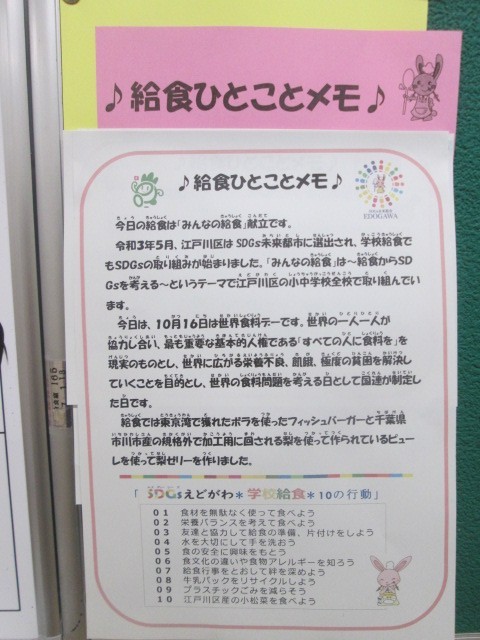 ♪給食ひとことメモ♪
♪給食ひとことメモ♪
EDOGAWA
今日の給食は「みんなの給食」献立です。
令和3年5月、江戸川区は SDGs未来都市に選出され、学校給食で
もSDGsの取り組みが始まりました。「みんなの給食」は～給食からSD
Gsを考える～というテーマで江戸川区の小中学校全校で取り組んでい
ます。
今日は、10月16日は世界食料デーです。世界の一人一人が
協力し合い、最も重要な基本的人権である「すべての人に食料を」を
現実のものとし、世界に広がる栄養不良、飢餓、極度の貧困を解決し
ていくことを目的とし、世界の食料問題を考える日として国連が制定し
た日です。
給食では東京湾で獲れたボラを使ったフィッシュバーガーと千葉県
市川市産の規格外で加工用に回される梨を使って作られているピュー
レを使って梨ゼリーを作りました。
「 SDGsえどがわ*学校給食*10の行動」
01 食材を無駄なく使って食べよう
02 栄養バランスを考えて食べよう
03 友達と協力して給食の準備、片付けをしよう
04 水を大切にして手を洗おう
05 食の安全に興味をもとう
06 食文化の違いや食物アレルギーを知ろう
07 給食行事をとおして絆を深めよう
08 牛乳パックをリサイクルしよう
09 プラスチックごみを減らそう
10 江戸川区産の小松菜を食べよう